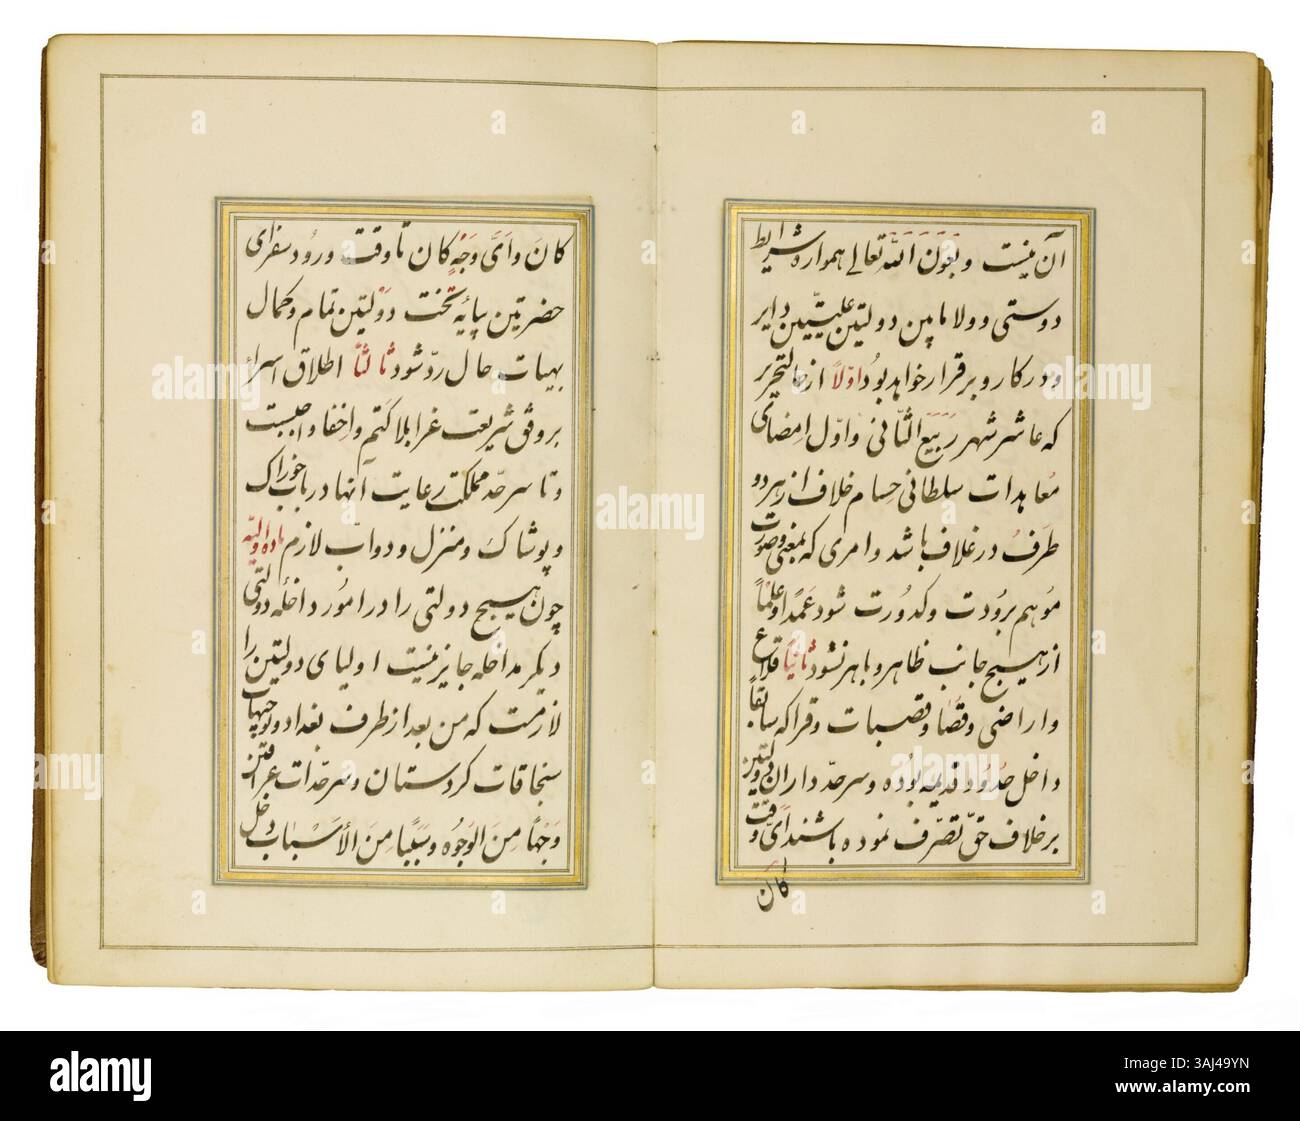 آن نیست و بعون الله تعالی همواره شرایط
دوستی و ولا مابین دولتین علیتین دایر
و در کار و برقرار خواهد بود اوّلاً از حال تحریر
که عاشر شهر ربیع الثّانی و اوّل امضای
معاهدات سلطانی حسام خلاف از هر دو
طرف در غلاف باشد و امری که بمعنی و صورت
موهم برودت و کدورت شود عمداً و علماً
از هیچ جانب ظاهر و باهر نشود ثانیاً قلاع
و اراضی و قصبات و قرا که سابقاً
داخل حدود قدیمه بوده و سرحدّداران دولتین
بر خلاف حقّ تصرّف نموده باشند ایّ وقت
کان
کانَ و اَیَّ وَجهٍ کان تا وقت ورود سفرای
حضرتین بپایه تخت دولتین تمام و کمال
بهیات حال ردّ شود ثالثاً اطلاق اسراء
بر وفق شریعت غرا بلا کتم و اخفا واجبست
و تا سر حد مملکت رعایت آنها در باب خوراک
و پوشاک و منزل و دواب لازم ماده والیه
چون هیچ دولتی را در امور داخله دولتی
دیکر مداخله جایز نیست اولیای دولتین را
لازمست که من بعد از طرف بغداد و توجیهات
سنجاقات کردستان و سرحدّات عراقین
وَجهاً مِنَ الوُجُوه وسَبَباً مِنَ الأَسْبَاب دخل
a
alamy
Image ID: 3AJ49YN
www.alamy.com